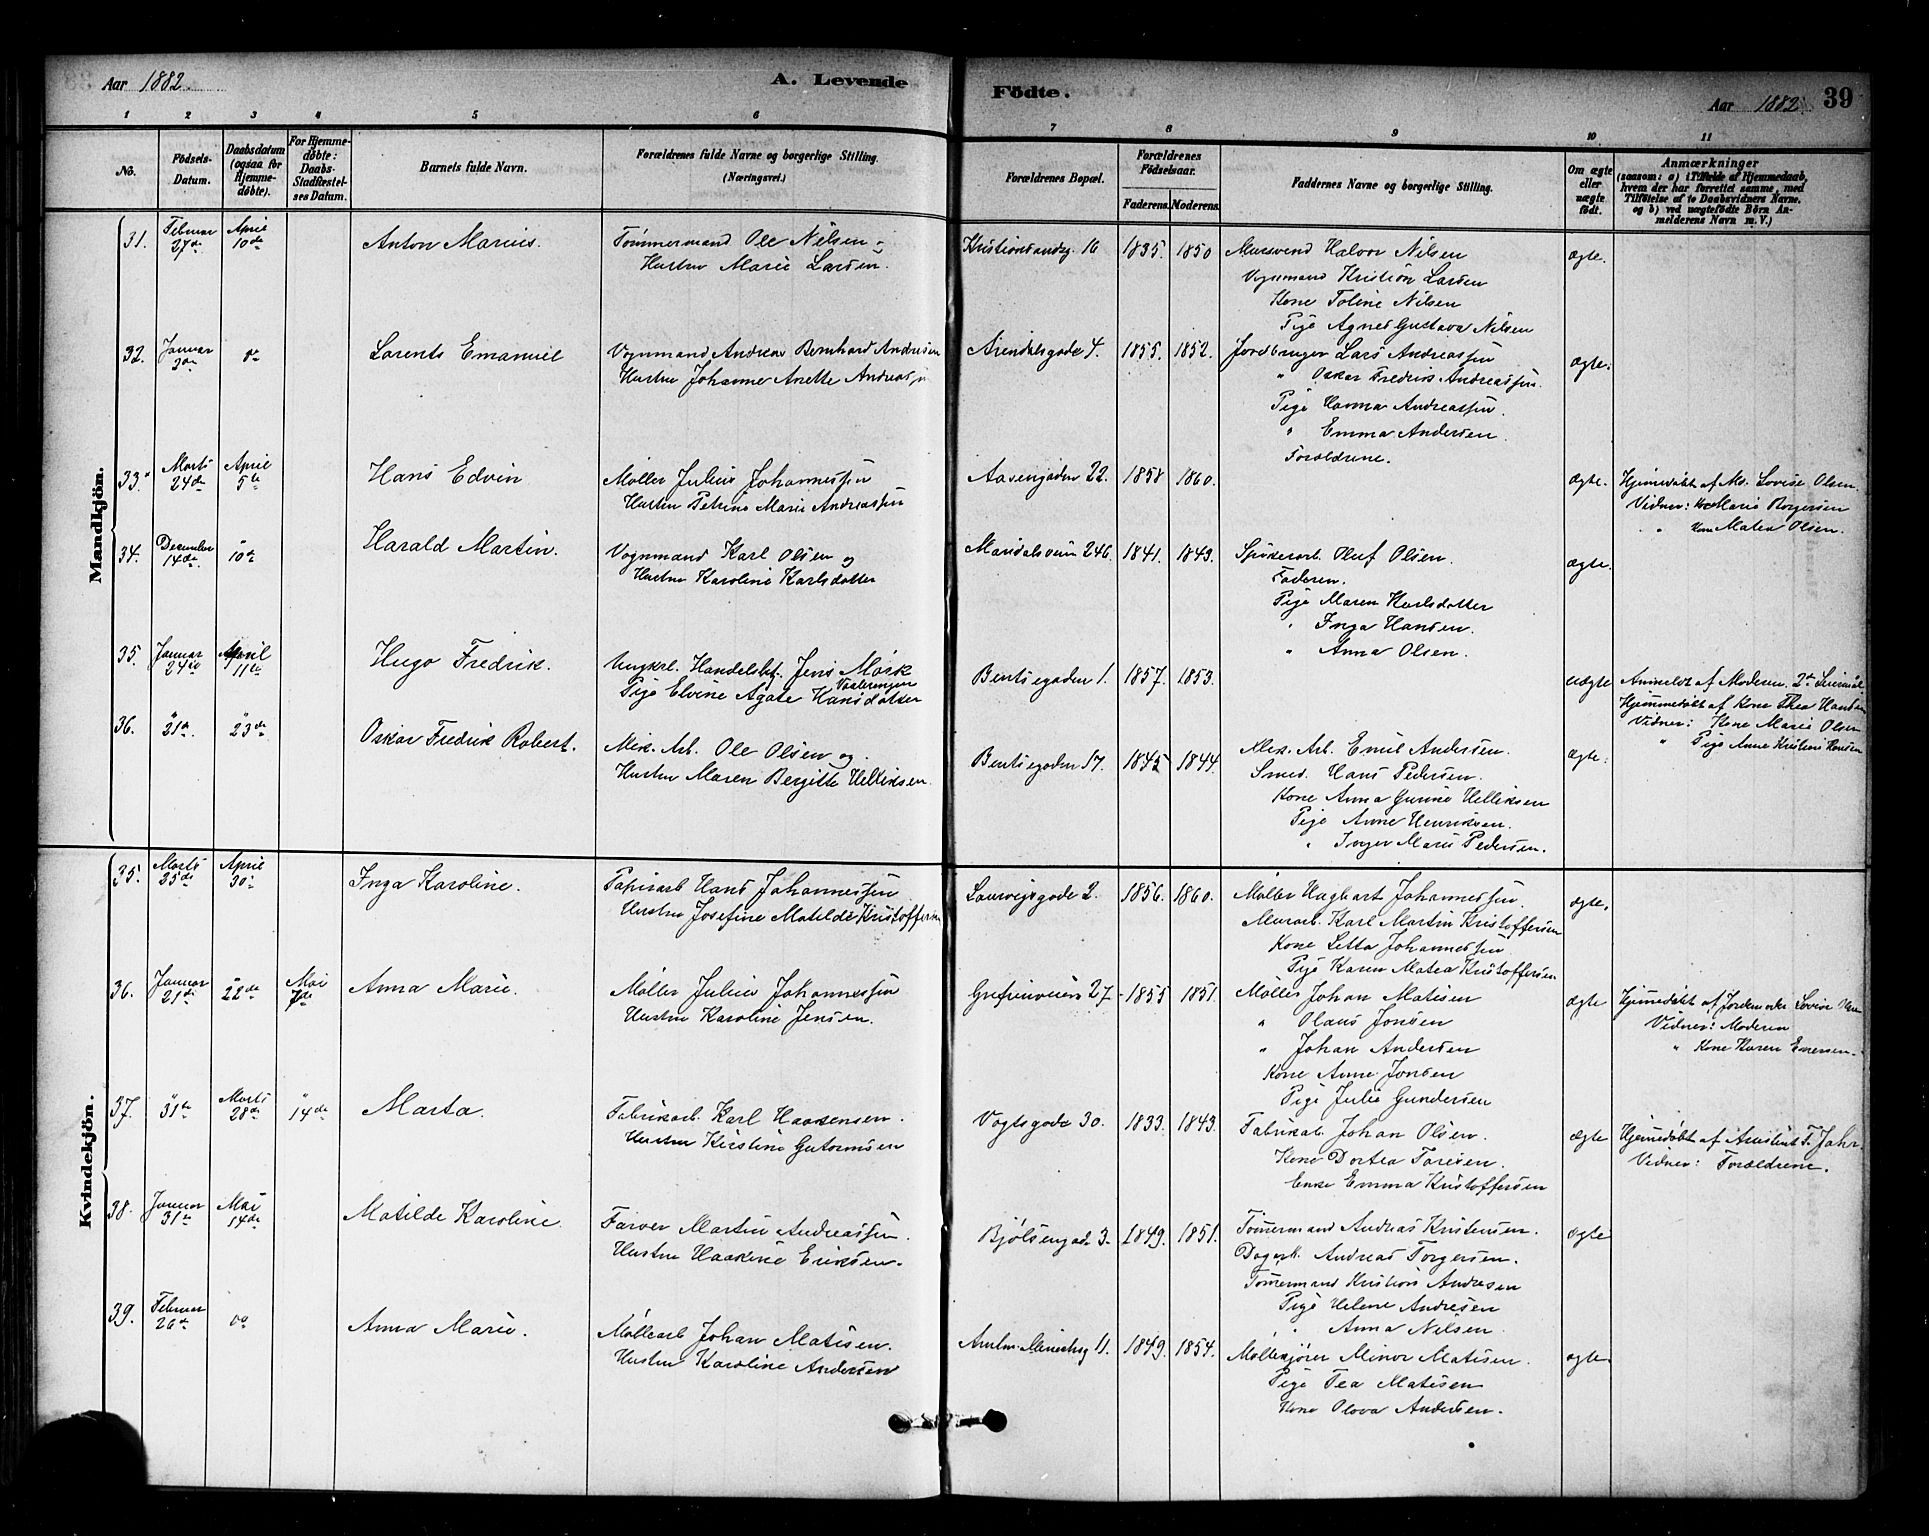 Aar 1882
A. Levende
Födte.
Aar 1882
39
1 2 3 4 5 6 7 8 9 10 11
No.
Födsels-
Datum.
Daabsdatum
(ogsaa for
Hjemme-
döbte).
For Hjemme-
döbte:
Daabs-
Stadfæstel-
ses Datum.
Barnets fulde Navn.
Forældrenes fulde Navne og borgerlige Stilling.
(Næringsvei.)
Forældrenes Bopæl.
Forældrenes
Födselsaar.
Faderens. Moderens.
Faddernes Navne og borgerlige Stilling.
Om ægte
eller
uægte
födt.
Anmærkninger
(saasom: a) i Tilfælde af Hjemmedaab,
hvem der har forrettet samme, med
Tilföielse af to Daabsvidners Navne,
og b) ved uægtefödte Börn An-
melderens Navn m. V.)
Mandkjön.
31. Februar 27de April 10de Anton Marius. Tømmermand Ole Nilsen
Hustru Marie Larsen.
Kristiansandsg. 16 1835. 1850 Mursvend Halvor Nilsen ægte.
Vognmand Kristian Larsen
Kone Toline Nilsen
Pige Agnes Gustava Nilsen
32. Januar 30te do Lorents Emanuel Vognmand Andreas Bernhard Andresen
Hustru Johanne Anette Andreassen
Arendalsgade 4. 1855. 1852. Jordbruger Lars Andreassen ægte.
" Oskar Fredrik Andreassen.
Pige Hanna Andreassen.
" Emma Andersen.
Forældrene.
33. Marts 24de April 5te Hans Edvin Møller Julius Johannessen
Hustru Petrine Marie Andreassen
Aasengaden 22. 1858 1860. ægte. Hjemmedøbt af M. Lovise Olsen.
Vidner: Kone Marie Borgersen
" Kone Matea Olsen.
34. December 14de " 10de Harald Martin. Vognmand Karl Olsen og
Hustru Karoline Karlsdatter
Maridalsveien 246. 1841. 1843. Spigerarb. Oluf Olsen. ægte.
Faderen.
Pige Maren Karlsdatter
" Inga Hansen.
" Anna Olsen.
35. Januar 24de April 11te Hugo Fredrik. Ungkrl. Handelsbt. Jens Mørk
Vaaleringen
Pige Elvine Agate Hansdatter
Bentsegaden 1. 1857. 1853. uægte Anmeldt af Moderen. 2det Leiermaal.
Hjemmedøbt af Kone Thea Hansen
Vidner: Kone Marie Olsen
" Pige Anne Kristine Hansen
36. " 21de " 23de Oskar Fredrik Robert. Mek. Arb. Ole Olsen og
Hustru Maren Bergitte Helliksen.
Bentsegaden 17. 1845 1844. Mek. Arb. Emil Andersen. ægte.
Smed. Hans Pedersen.
Kone Anna Gurine Helliksen
Pige Anne Henriksen.
" Inger Marie Pedersen.
Kvindekjön.
35. Marts 25de April 30te Inga Karoline. Papirarb Hans Johannessen
Hustru Josefine Matilde Kristoffersen
Laurvigsgade 2. 1856. 1860. Møller Hagbart Johannessen ægte.
Murarb. Karl Martin Kristoffersen
Kone Letta Johannessen
Pige Karen Matea Kristoffersen
36. Januar 21de " 22de Mai 7de Anna Marie. Møller Julius Johannessen
Hustru Karoline Jensen.
Grefsenveien 27 1855 1851. Møller Johan Matisen ægte Hjemmedøbt af Jordemoder Lovise
" Olaus Jonsen Vidner: Moderen
" Johan Andersen " Kone Karen Enersen.
Kone Anne Jonsen
Pige Julie Gundersen
37. " 31te Marts 28de " 14de Marta. Fabrikarb. Karl Haakensen.
Hustru Kirstine Gutormsen
Vogtsgade 30. 1833. 1843. Fabrikarb. Johan Olsen. ægte Hjemmedøbt af Assistent T. Jahr
Kone Dortea Toresen. Vidner: Forældrene.
Enke Emma Kristoffersen
38. Januar 31te Mai 14de Matilde Karoline. Farver Martin Andreassen.
Hustru Haakine Eriksen.
Bjølsengade 3. 1849. 1851. Tømmermand Andreas Kristensen. ægte
Dagarb. Andreas Torgersen.
Tømmermand Kristian Andresen
Pige Helene Andresen
" Anna Nilsen.
39. Februar 26de do Anna Marie. Møllearb Johan Matisen.
Hustru Karoline Andersen
11. 1849. 1854. Møllekjører Minor Matisen. ægte
Pige Tea Matisen
Kone Olava Andersen.